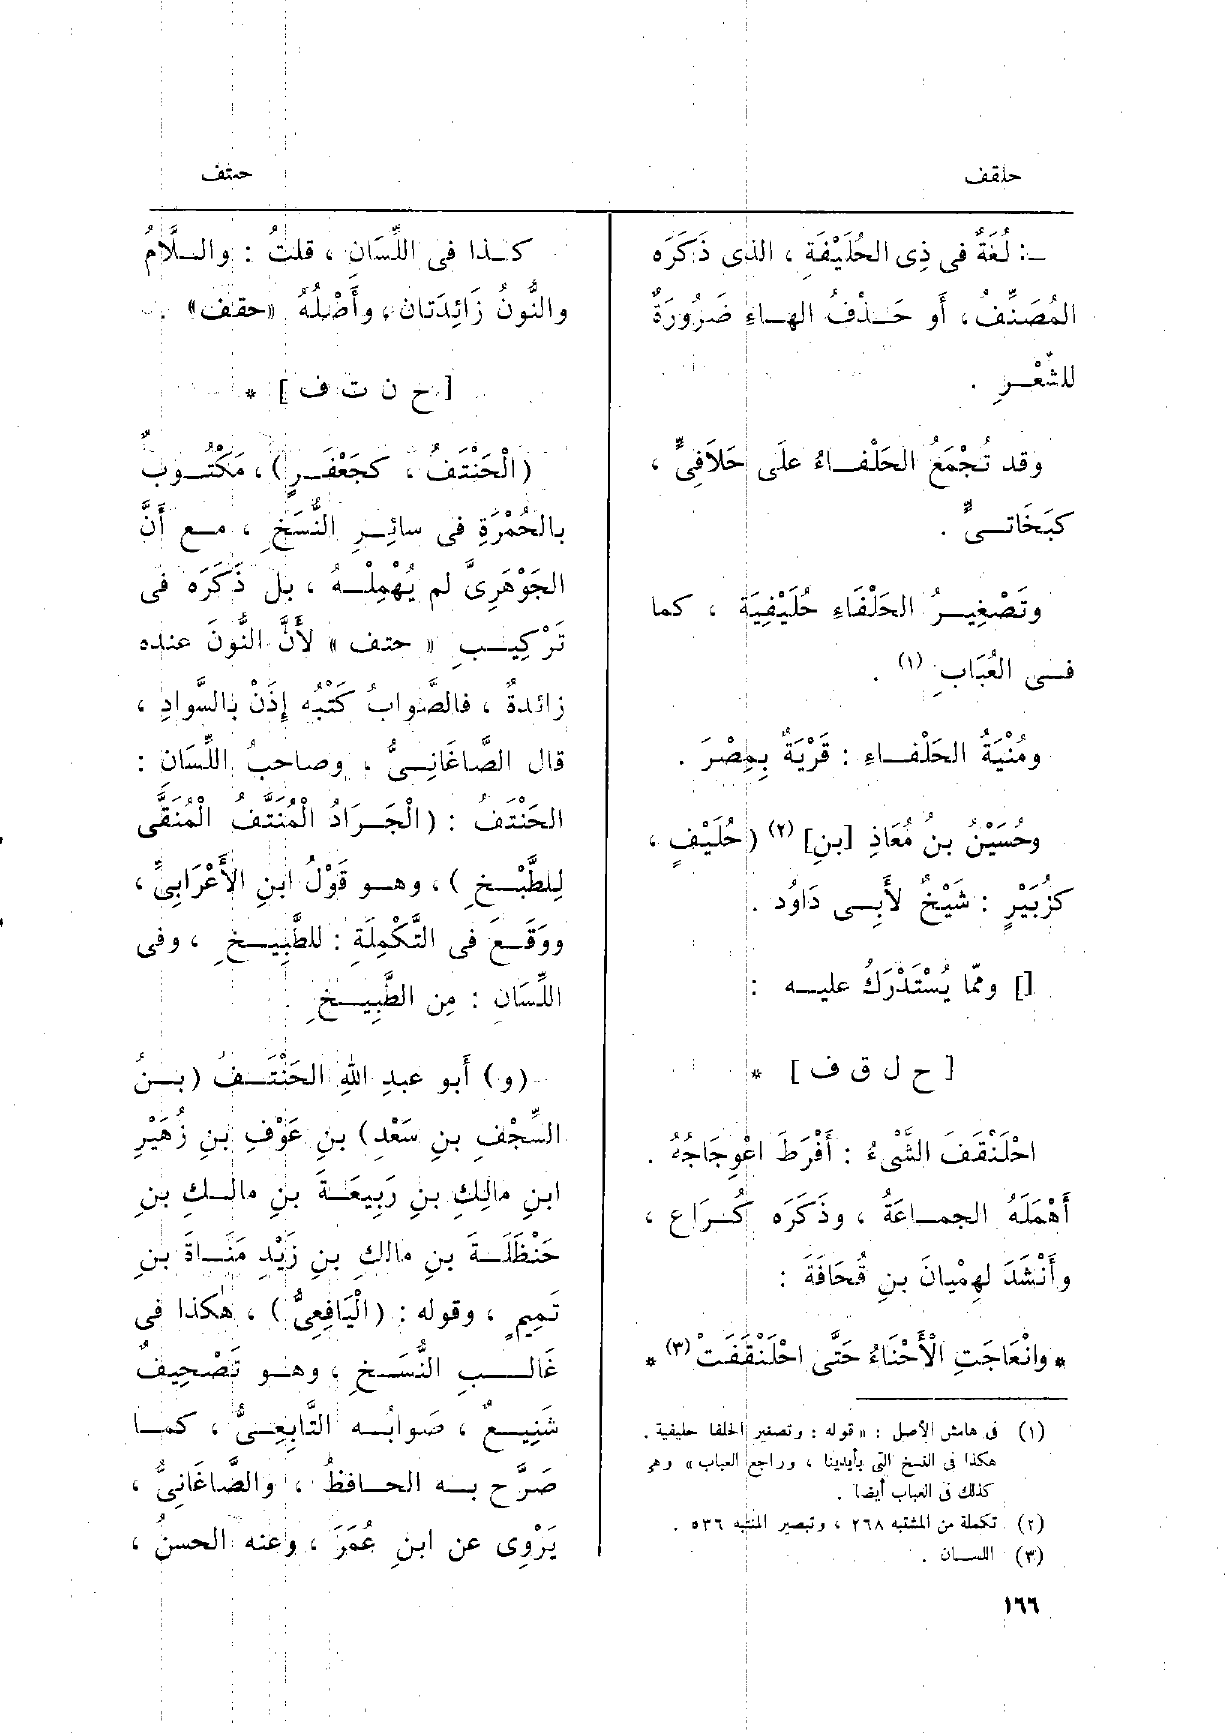 حلقف
حنتف
ــ: لُغَةٌ فى ذِى الحُلَيْفَةِ ، الذى ذَكَرَه
المُصَنِّفُ، أو حَـذْفُ الهـاءِ ضَرُورَةٌ
للشِّعْـرِ .
وقد تُجْمَعُ الحَلْفـاءُ علَى حَلَافِىٍّ ،
كبَخَاتـىٍّ .
وتَصْغِيـرُ الحَلْفَاءِ حُلَيْفِيَة ، كما
فـى العُبَابِ (١) .
ومُنْيَةُ الحَلْفـاءِ : قَرْيَةٌ بِمِصْرَ .
وحُسَيْنُ بنُ مُعَاذِ [بنِ] (٢) (حُلَيْفٍ ،
كزُبَيْرٍ : شَيْخٌ لأَبِـى دَاوُد .
[] وممّا يُسْتَدْرَكُ عليـه :
[ ح ل ق ف ] *
احْلَنْقَفَ الشَّىْءُ : أَفْرَطَ اعْوِجَاجُهُ .
أَهْمَلَهُ الجمـاعَةُ ، وذَكَرَه كُـرَاع ،
وأَنْشَدَ لهِمْيانَ بنِ قُحَافَةَ :
* وانْعَاجَتِ الْأَحْنَاءُ حَتَّى احْلَنْقَفَتْ (٣) *
(١) فى هامش الأصل : « قوله : وتصغير الحلفا حليفية .
هكذا فى النسخ التى بأيدينا ، وراجع العباب » وهى
كذلك فى العباب أيضا .
(٢) تكملة من المشتبه ٢٦٨ ، وتبصير المنتبه ٥٣٦ .
(٣) اللسان .
كـذا فى اللِّسَانِ ، قلتُ : والـلَّامُ
والنُّونُ زَائِدَتان، وأَصْلُهُ «حقف» .
[ ح ن ت ف ] *
(الْحَنْتَفُ ، كجَعْفَـرٍ)، مَكْتُوبٌ
بالحُمْرَةِ فى سائِـرِ النُّسَخِ ، مـع أَنَّ
الجَوْهَرِىَّ لم يُهْمِلْـهُ ، بل ذَكَرَه فى
تَرْكِيـبِ « حتف » لأَنَّ النُّونَ عنده
زائدةٌ ، فالصَّوابُ كَتْبُه إِذَنْ بالسَّوادِ ،
قال الصَّاغَانِـىُّ ، وصاحبُ اللِّسَانِ :
الحَنْتَفُ : (الْجَـرَادُ الْمُنَتَّفُ الْمُنَقَّى
لِلطَّبْـخِ )، وهـو قَوْلُ ابنِ الأَعْرَابِىِّ ،
ووَقَـعَ فى التَّكْمِلَةِ : للطَّبِيـخِ ، وفى
اللِّسَانِ : مِن الطَّبِيـخِ .
(و) أَبو عبدِ اللهِ الحَنْتَـفُ (بـنُ
السِّجْفِ بنِ سَعْدِ) بنِ عَوْفِ بنِ زُهَيْرِ
ابنِ مالِكِ بنِ رَبِيعَـةَ بنِ مالـكِ بنِ
حَنْظَلَـةَ بنِ مالكِ بنِ زَيْدِ مَنَـاةَ بنِ
تَمِيمٍ ، وقوله : (الْيَافِعِىُّ) ، هٰكذا فى
غَالـبِ النُّسَـخِ ، وهـو تَصْحِيفٌ
شَنِيـعٌ ، صَوابُـه التَّابِعِـىُّ ، كمـا
صَرَّح بـه الحـافظُ ، والصَّاغانِىُّ ،
يَرْوِى عن ابنِ عُمَرَ ، وعنه الحسنُ ،
١٦٦